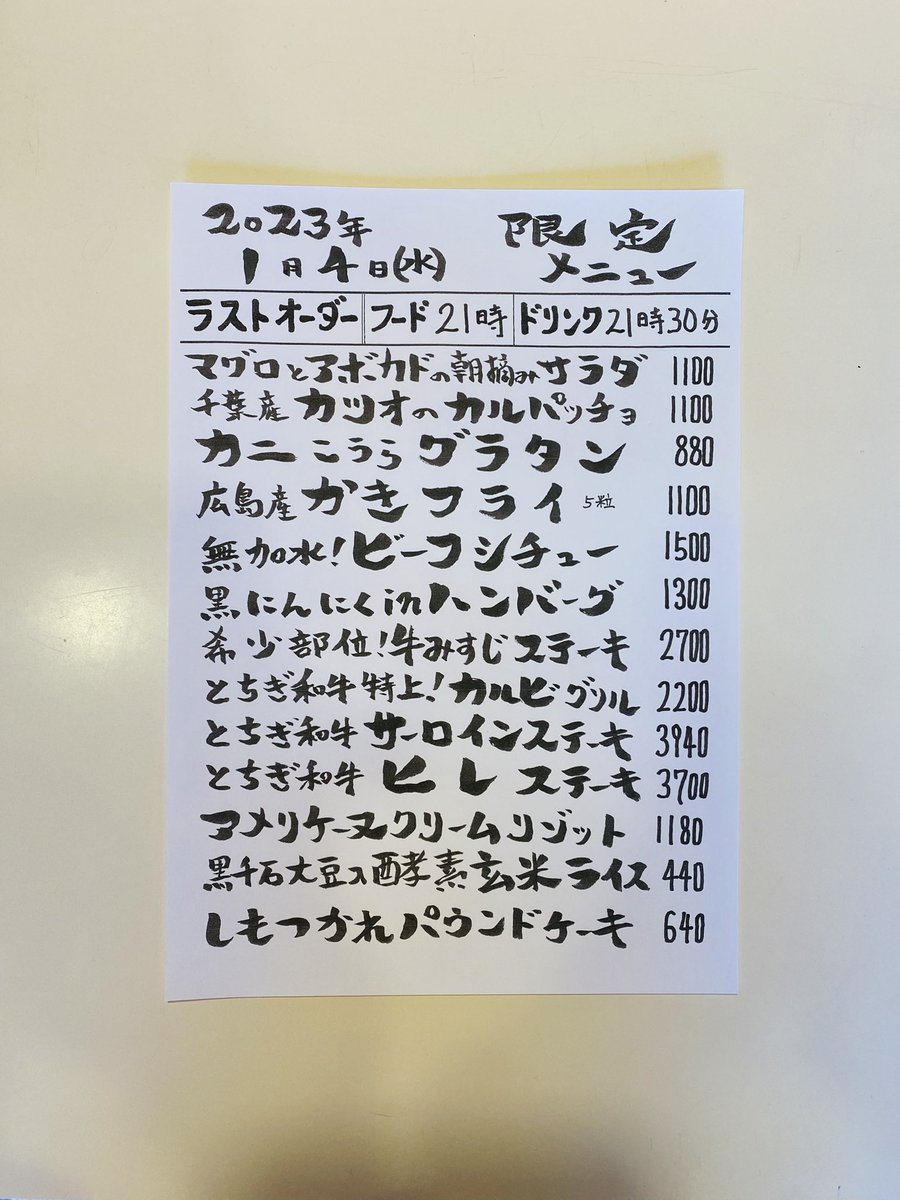 2023年 限定
1月4日(水) メニュー
ラストオーダー フード21時 ドリンク21時30分
マグロとアボカドの朝摘みサラダ 1100
千葉産 カツオのカルパッチョ 1100
カニこうらグラタン 880
広島産 かきフライ 5粒 1100
無加水!ビーフシチュー 1500
黒にんにくinハンバーグ 1300
希少部位!牛みすじステーキ 2700
とちぎ和牛特上!カルビグリル 2200
とちぎ和牛サーロインステーキ 3940
とちぎ和牛 ヒレステーキ 3700
アメリケーヌクリームリゾット 1180
黒千石大豆入酵素玄米ライス 440
しもつかれパウンドケーキ 640